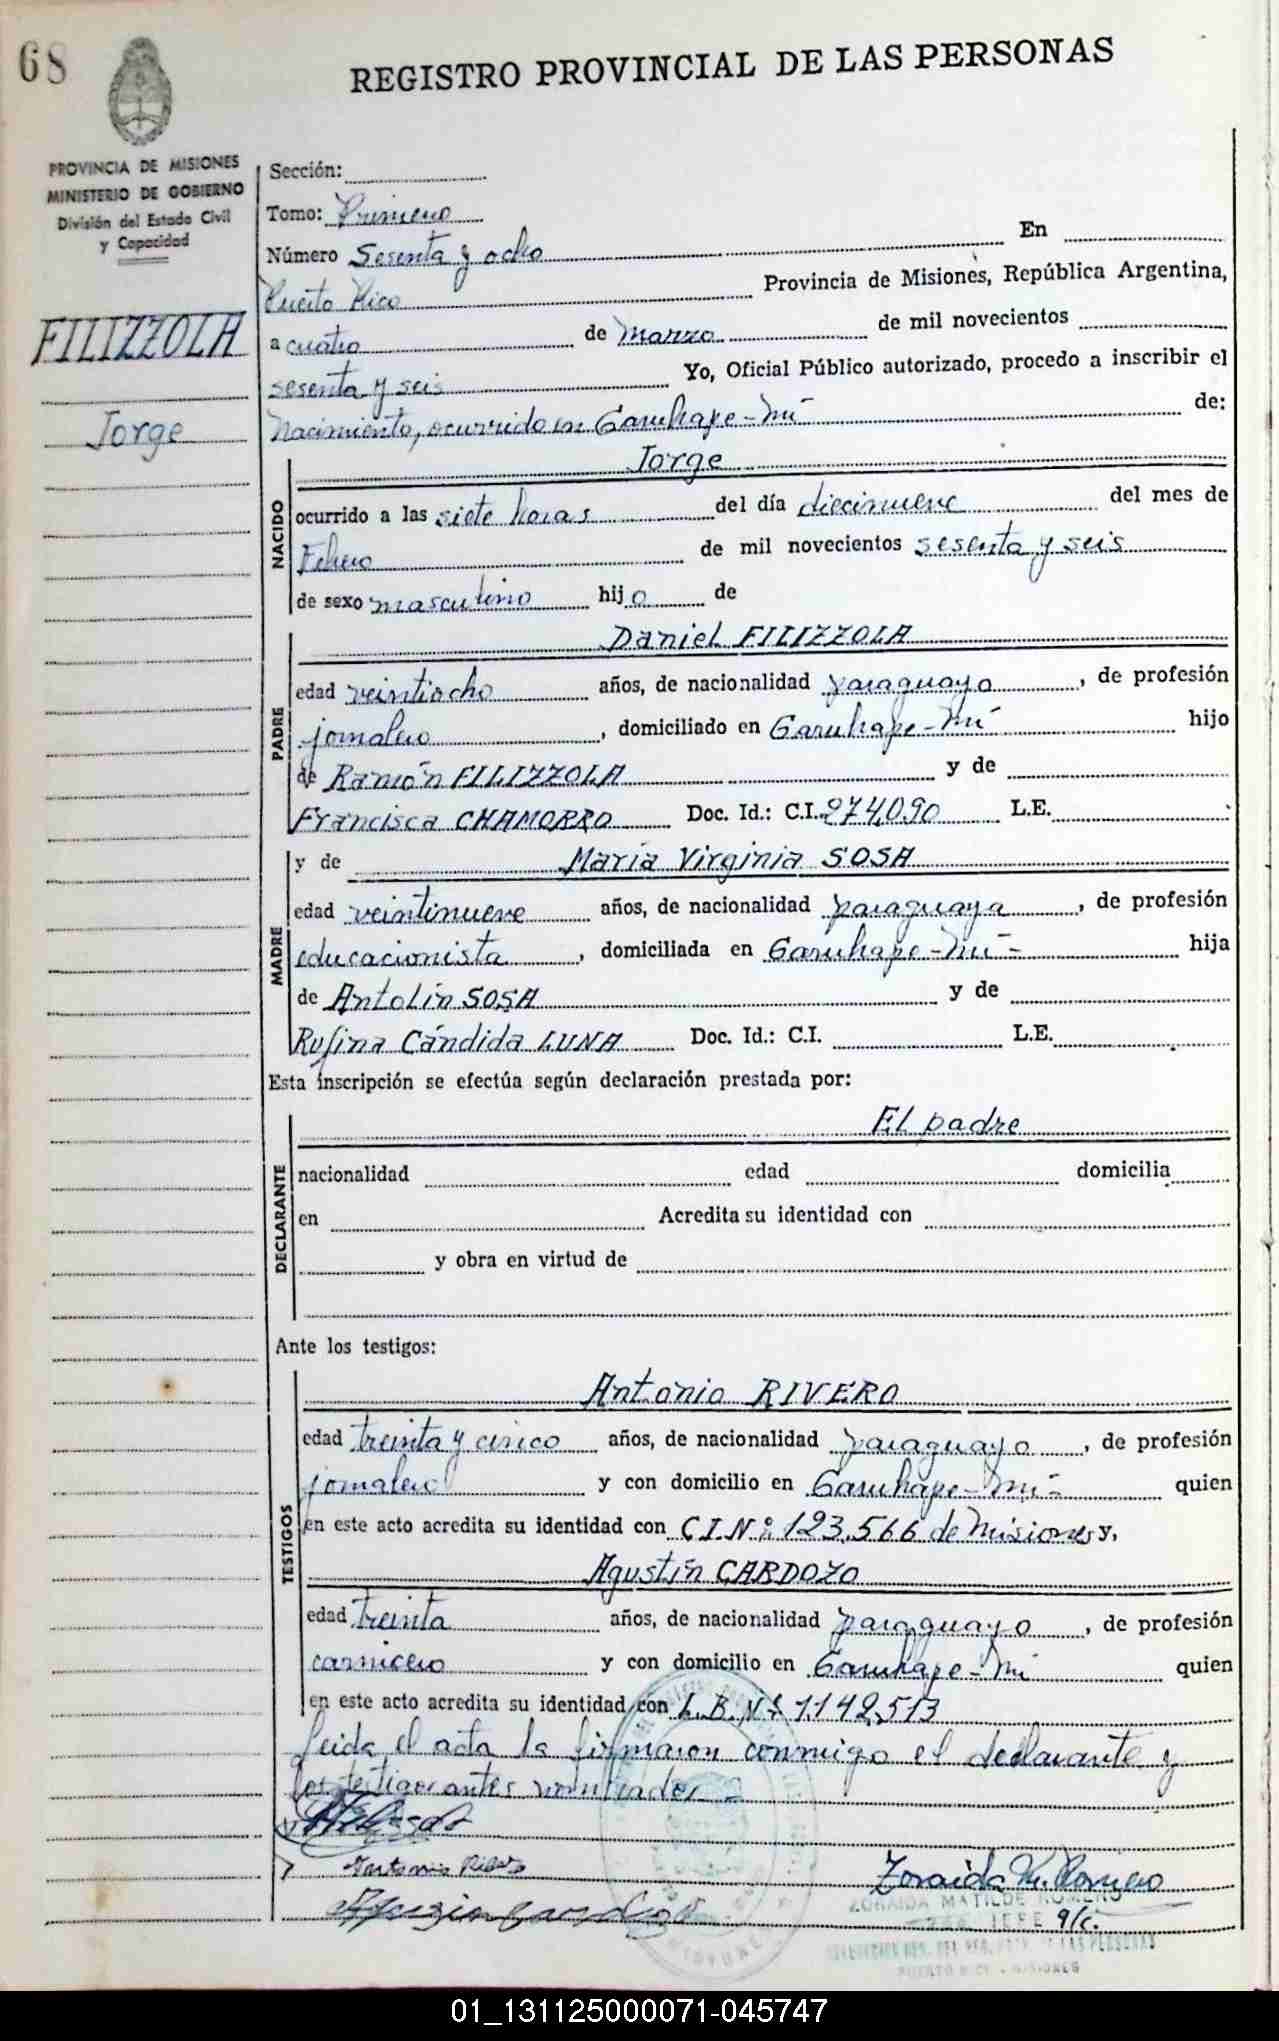 68
REGISTRO PROVINCIAL DE LAS PERSONAS
PROVINCIA DE MISIONES
MINISTERIO DE GOBIERNO
División del Estado Civil
y Capacidad
FILIZZOLA
Jorge
Sección:
Tomo: Primero
Número Sesenta y ocho En
Puerto Rico Provincia de Misiones, República Argentina,
a cuatro de Marzo de mil novecientos
sesenta y seis Yo, Oficial Público autorizado, procedo a inscribir el
Nacimiento, ocurrido en Garuhape-mí de:
NACIDO
Jorge
ocurrido a las siete horas del día diecinueve del mes de
Febrero de mil novecientos sesenta y seis
de sexo masculino hijo de
PADRE
Daniel FILIZZOLA
edad veintiocho años, de nacionalidad paraguayo, de profesión
jornalero, domiciliado en Garuhape-mí hijo
de Ramón FILIZZOLA y de
Francisca CHAMORRO Doc. Id.: C.I. 274.090 L.E.
MADRE
y de María Virginia SOSA
edad veintinueve años, de nacionalidad paraguaya, de profesión
educacionista, domiciliada en Garuhape-mí- hija
de Antolín SOSA y de
Rufina Cándida LUNA Doc. Id.: C.I. L.E.
Esta inscripción se efectúa según declaración prestada por:
DECLARANTE
El padre
nacionalidad edad domicilia
en Acredita su identidad con
y obra en virtud de
Ante los testigos:
TESTIGOS
Antonio RIVERO
edad treinta y cinco años, de nacionalidad paraguayo, de profesión
jornalero y con domicilio en Garuhape-mí- quien
en este acto acredita su identidad con C.I.Nº 123.566 de Misiones y,
Agustín CARDOZO
edad treinta años, de nacionalidad paraguayo, de profesión
carnicero y con domicilio en Garuhape-mí quien
en este acto acredita su identidad con L.B.Nº 1.142.513
Leida el acta la firmaron conmigo el declarante y
los testigos antes nombrados-
Zoraida M. Romero
ZORAIDA MATILDE ROMERO
JEFE a/c.
DE LAS PERSONAS
PUERTO RICO - MISIONES
01_131125000071-045747